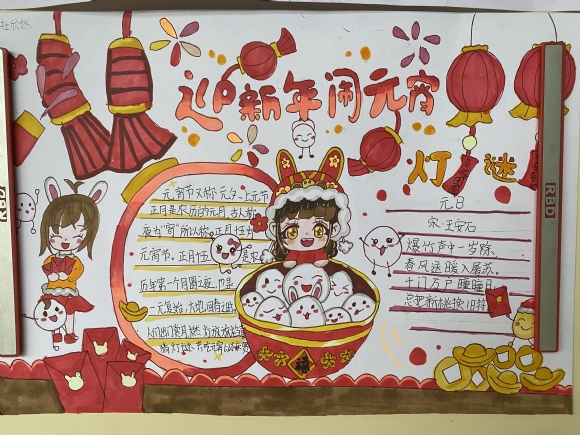 杜欣然
迎新年闹元宵
灯谜
元宵节又称元夕、上元节
正月是农历的元月,古人称
夜为"宵"所以称正月十五
元宵节。正月十五
历年第一个月圆之夜,也是
一元复始,大地回春
人们出门赏月,燃灯放焰
猜灯谜,共吃元宵
元日
宋·王安石
爆竹声中一岁除,
春风送暖入屠苏。
千门万户曈曈日,
总把新桃换旧符
福
RBD
RBD